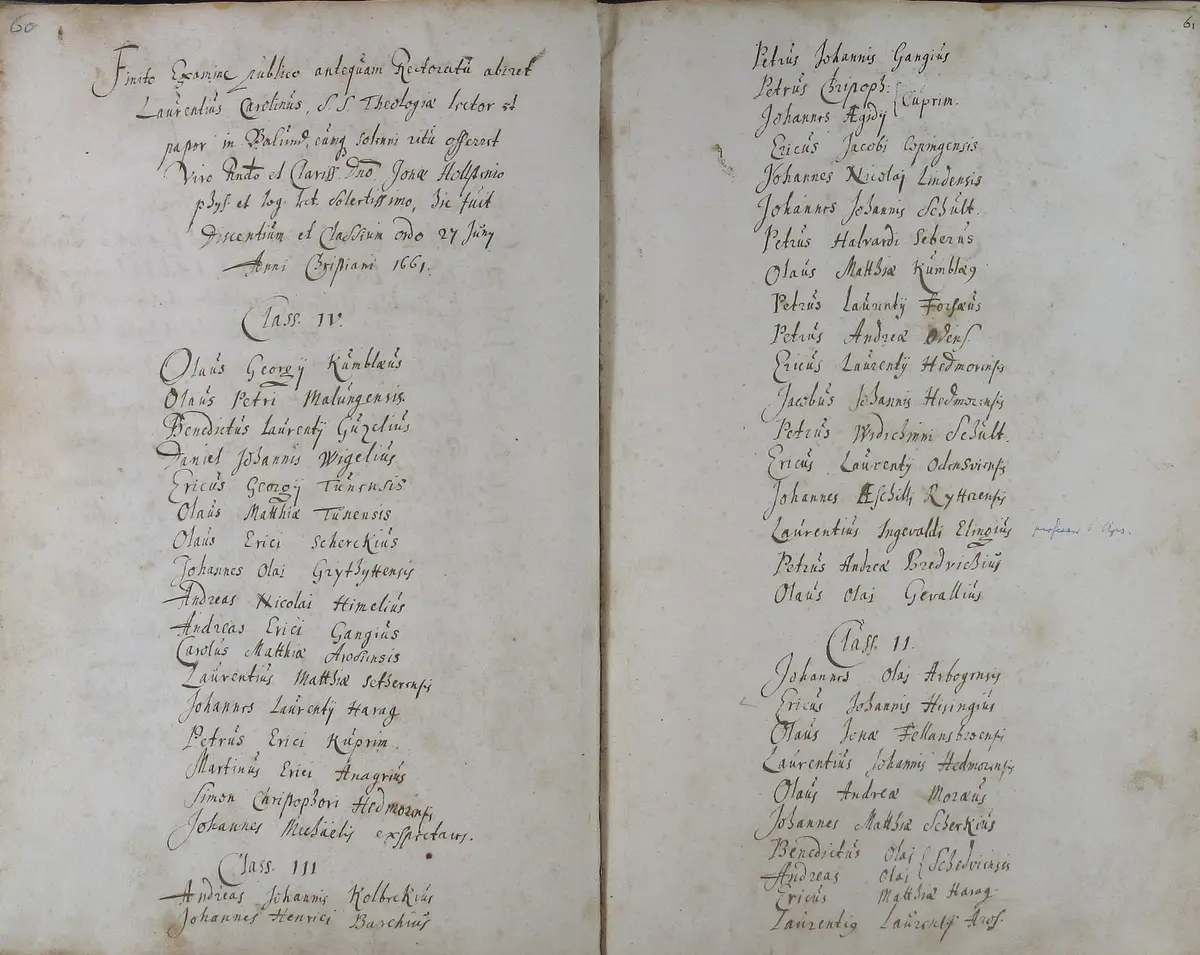 60
Finito Examine publico antequam Rectoratu abiret
Laurentius Carolinus, S. S. Theologiæ lector et
pastor in Balund, eumq solenni ritu offerret
Viro Rndo et Clariss. Dno. Jonæ Hollstenio
phys et log. lect. solertissimo, hic fuit
Discentium et Classium ordo 27 Junij
Anni Christiani 1661.
Class. IV.
Olaus Georgij Kumblæus
Olaus Petri Malungensis.
Benedictus Laurentij Guzelius
Daniel Johannis Wigelius
Ericus Georgij Tunensis
Olaus Matthiæ Tunensis
Olaus Erici Scherckius
Johannes Olai Grythyttensis
Andreas Nicolai Himelius
Andreas Erici Gangius
Carolus Matthiæ Arosiensis
Laurentius Matthiæ Setherensis
Johannes Laurentij Harag
Petrus Erici Kuprim.
Martinus Erici Anagrius
Simon Christophori Hedmorensis
Johannes Michaelis exspectans.
Class. III
Andreas Johannis Kolbeckius
Johannes Henrici Barchius
61
Petrus Johannis Gangius
Petrus Christoph:
Johannes Ægidij Cuprim.
Ericus Jacobi Copingensis
Johannes Nicolaj Lindensis
Johannes Johannis Schult.
Petrus Halvardi Seberus
Olaus Matthiæ Kumblæg
Petrus Laurentij Forsæus
Petrus Andreæ Odens.
Ericus Laurentij Hedmorensis
Jacobus Johannis Hedmorensis
Petrus Widichinni Schult.
Ericus Laurentij Odensviensis
Johannes Æschilli Ryttrensis
Laurentius Ingevaldi Elingius professor i Ups.
Petrus Andreæ Bredvichius
Olaus Olai Gevallius
Class. II.
Johannes Olai Arbogensis
Ericus Johannis Hisingius
Olaus Jonæ Fellansbroensis
Laurentius Johannis Hedmorensis
Olaus Andreæ Moræus
Johannes Matthiæ Scherkius
Benedictus Olai
Andreas Olai Schedviensis
Ericus Matthiæ Harag.
Laurentig Laurentij Aros.